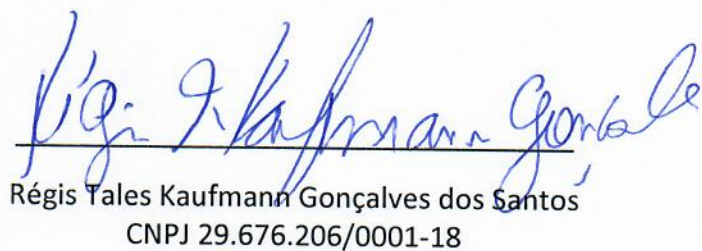 Régis T. Kaufmann Gonçalves
Régis Tales Kaufmann Gonçalves dos Santos
CNPJ 29.676.206/0001-18